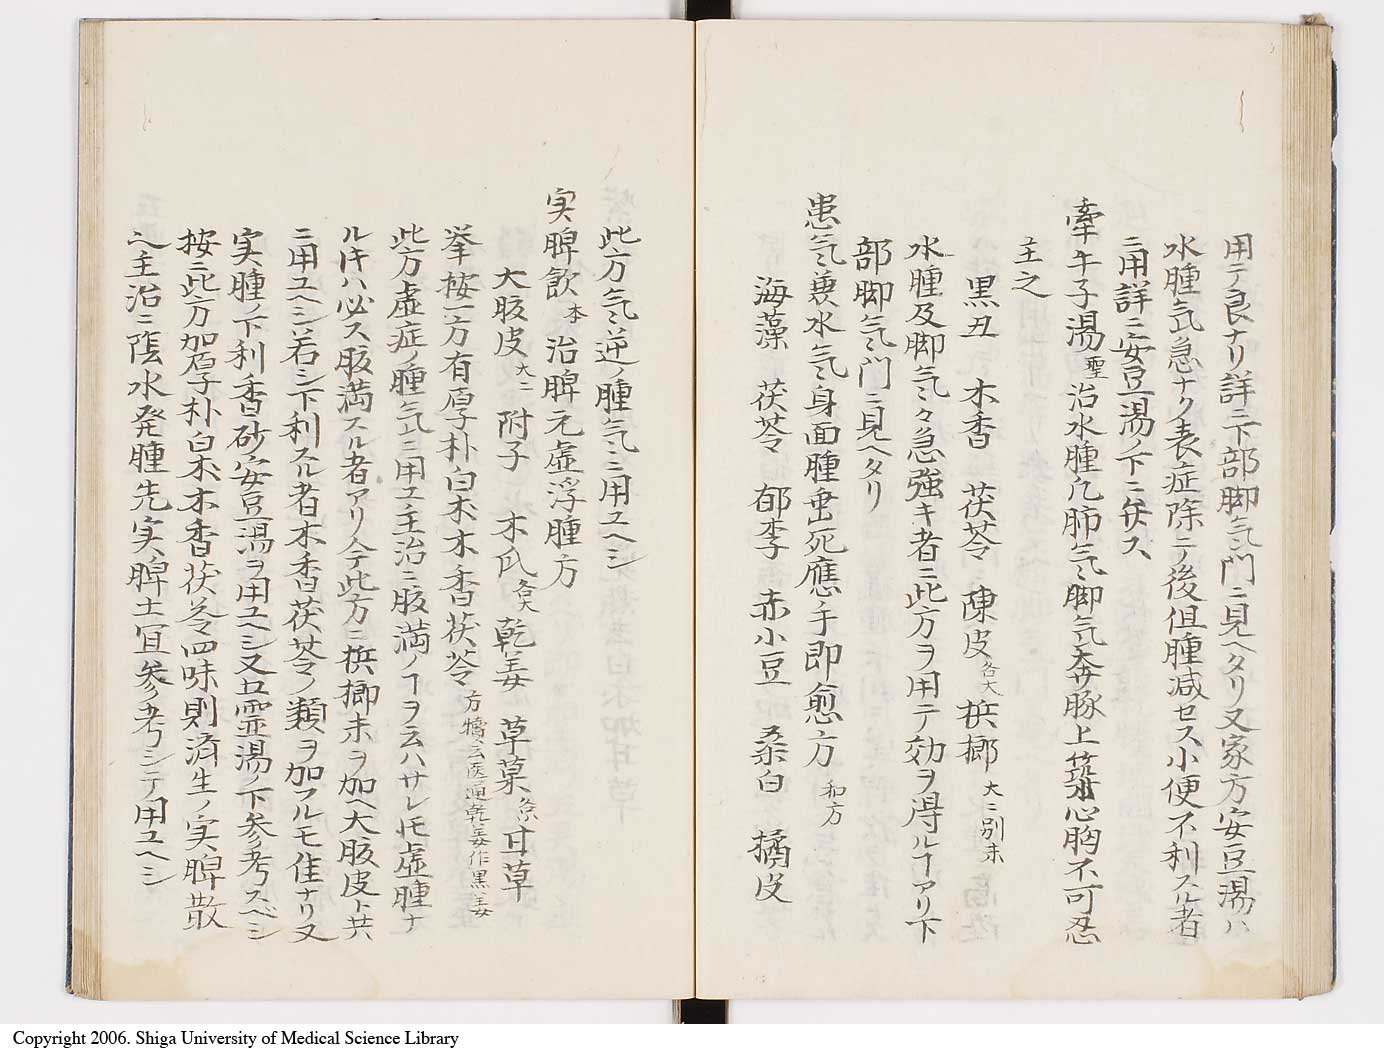 用テ良ナリ詳ニ下部脚气門ニ見ヘタリ又家方安豆湯ハ
水腫气急ナク表症除テ後但腫減セス小便不利スル者
ニ用詳ニ安豆湯ノ下ニ弁ス
牽牛子湯聖治水腫凡肺气脚气奔豚上築心胸不可忍
主之
黒丑 木香 茯苓 陳皮各大 梹榔大二別末
水腫及脚气々急強キ者ニ此方ヲ用テ効ヲ得ルヿアリ下
部脚气門ニ見ヘタリ
患气兼水气身面腫垂死應手即愈方和方
海藻 茯苓 郁李 赤小豆 桑白 橘皮
此方气逆ノ腫气ニ用ユヘシ
実脾飲本治脾元虚浮腫方
大腹皮大二 附子 木瓜各大 乾姜 草菓各 甘草
挙按一方有厚朴白朮木香茯苓方攜云医通乾姜作黒姜
此方虚症ノ腫气ニ用ユ主治ニ腹満ノヿヲ云ハサレ𪜈虚腫ナ
ルキハ必ス腹満スル者アリ今此方ニ梹榔末ヲ加ヘ大腹皮ト共
ニ用ユヘシ若シ下利スル者木香茯苓ノ類ヲ加フルモ佳ナリ又
実腫ノ下利香砂安豆湯ヲ用ユヘシ又五霊湯ノ下参考スベシ
按ニ此方加厚朴白朮木香茯苓四味則済生ノ実脾散
ヘ主治ニ陰水発腫先実脾土宜参考シテ用ユヘシ
Copyright 2006. Shiga University of Medical Science Library